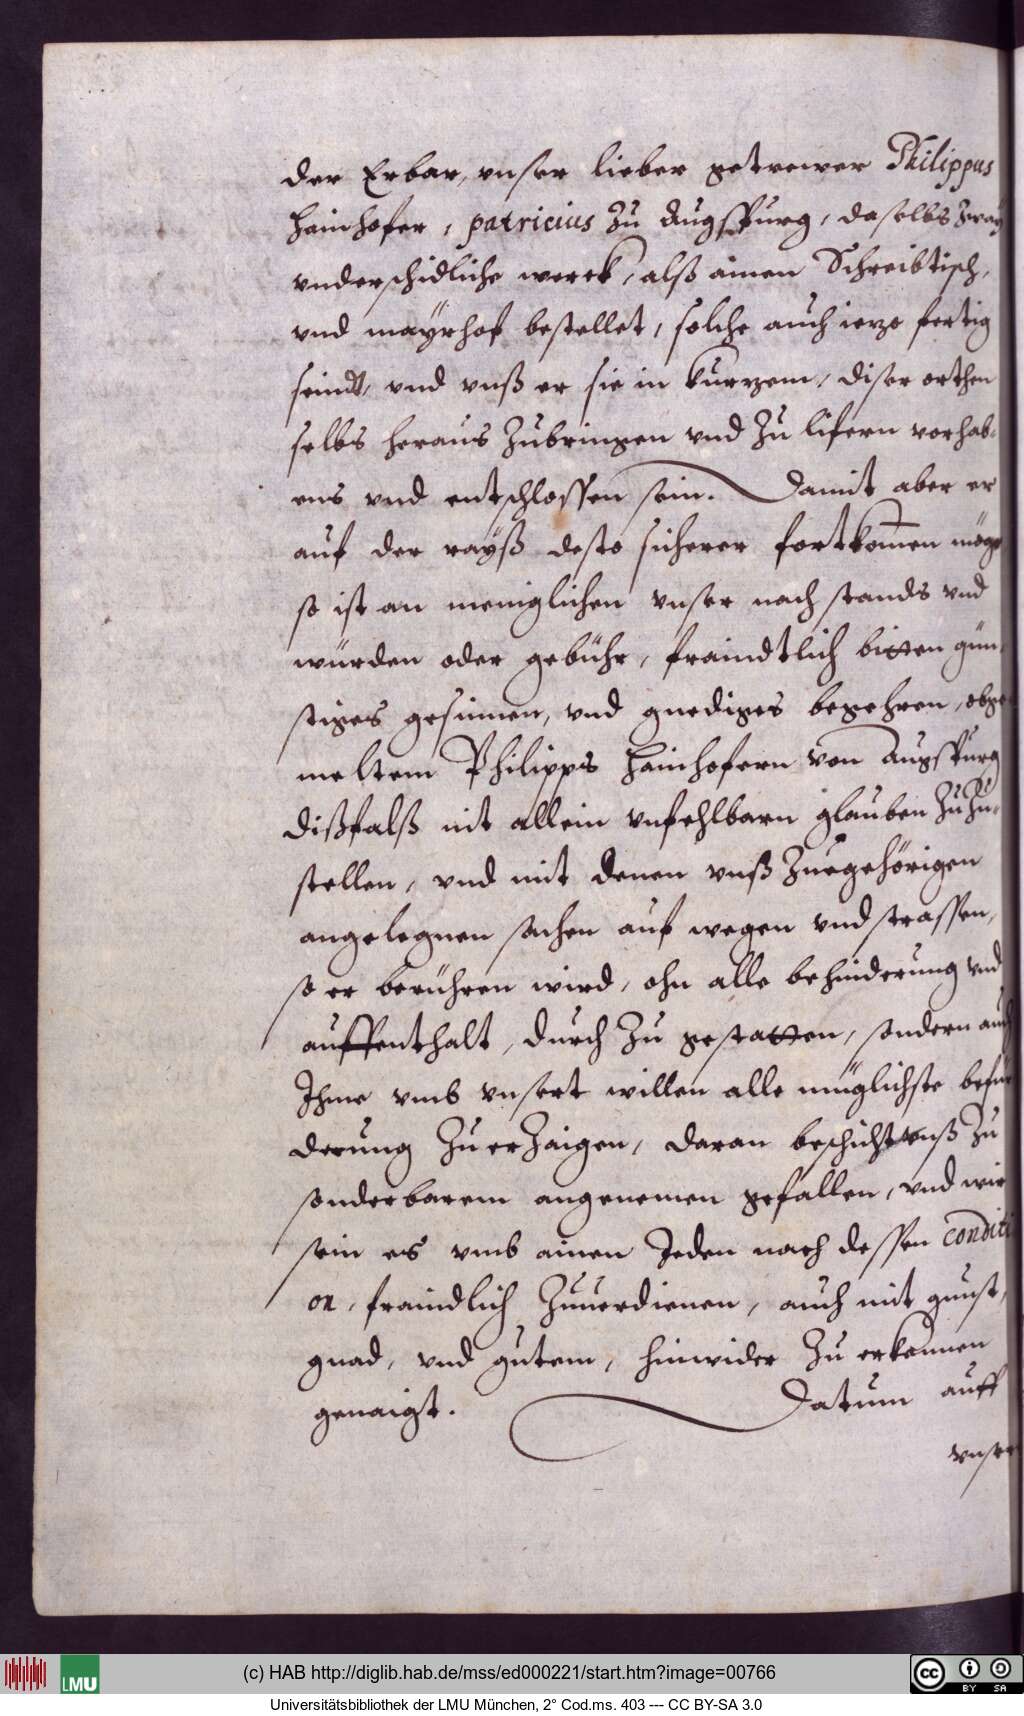 der Erbar, vnser lieber getrewer Philippus
Hainhofer, patricius zu Augspurg, daselbs zway
vnderschidliche werck, alß ainen Schreibtisch,
vnd mayrhof bestellet, solche auch ieze fertig
seindt, vnd vnß er sie in kurzem, diser orthen
selbs heraus zubringen vnd zu lifern vorhab-
ens vnd entschlossen sein. Damit aber er
auf der rayß desto sicherer fortkom̄en möge
so ist an meniglichen vnser nach stands vnd
würden oder gebühr, fraindtlich bitten gün-
stiges gesinnen, vnd gnediges begehren, obge
meltem Philipps Hainhofern von Augspurg
dißfalß nit allein vnfehlbarn glauben zuzu-
stellen, vnd mit denen vnß zuegehörigen
angelegnen sachen auf wegen vnd strassen,
so er berühren wird, ohn alle behinderung vnd
auffenthalt, durch zu gestatten, sondern auch
Ihme vmb vnsert willen alle müglichste befür
derung zuerzaigen, daran beschicht vnß zu
sonderbarem angenemen gefallen, vnd wir
sein es vmb ainen Jeden nach dessen conditi
on, fraindlich zuuerdienen, auch mit gunst,
gnad, vnd gutem, hinwider zu erkennen
genaigt. Datum auff
vnser
(c) HAB http://diglib.hab.de/mss/ed000221/start.htm?image=00766
LMU
CC BY SA
Universitätsbibliothek der LMU München, 2° Cod.ms. 403 --- CC BY-SA 3.0